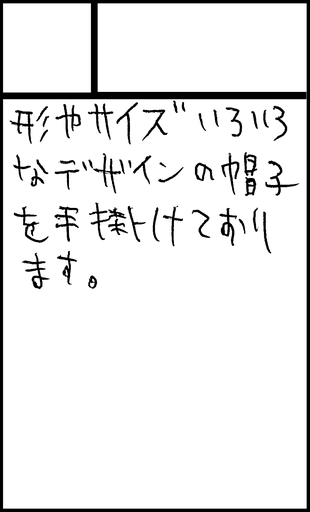 形やサイズいろいろ
なデザインの帽子
を手掛けており
ます。